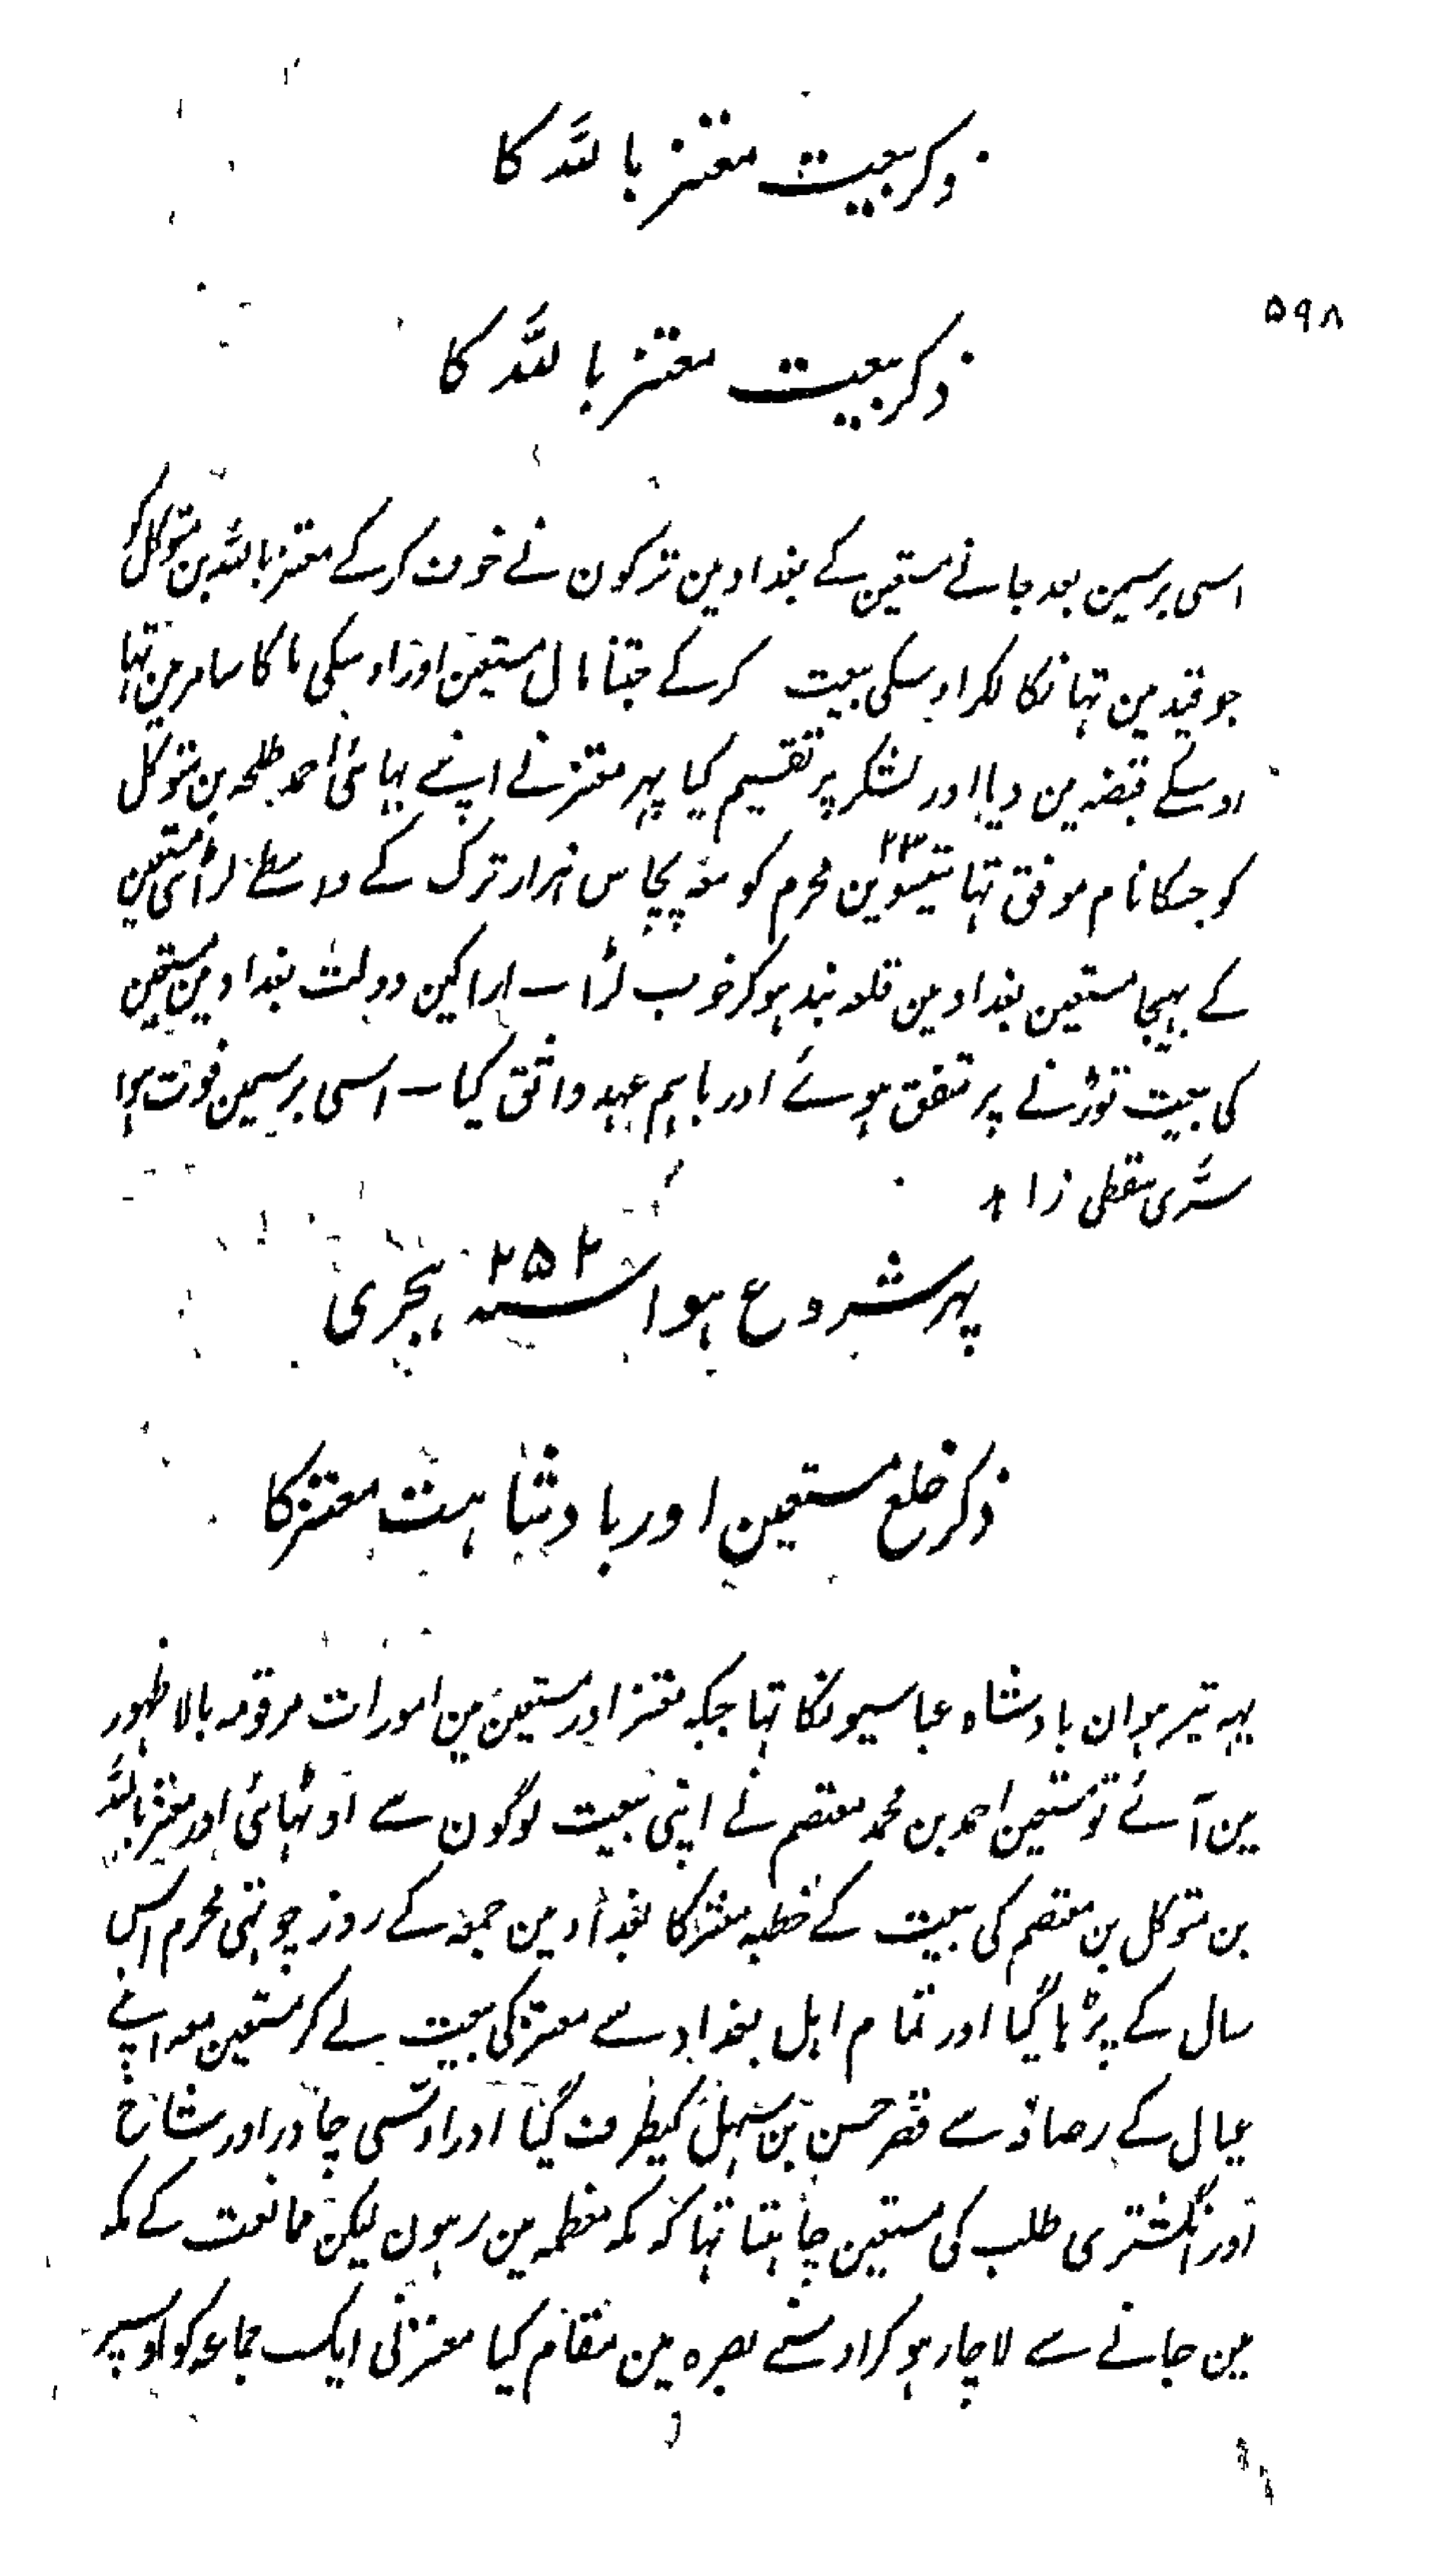 ذکر بیعت معتز باللہ کا
۵۹۸
ذکر بیعت معتز باللہ کا
اسی برسمین بعد جانے مستعین کے بغداد مین ترکون نے خوف کرکے معتز باللہ بن متوکل کو
جو قید مین تہا نکالکر اوسکی بیعت کرکے جتنا مال مستعین اور اوسکی ما کا سامر مین تہا
اوسکے قبضہ مین دیا اور لشکر پر تقسیم کیا پہر معتز نے اپنے بہائی احمد طلحہ بن متوکل
کو جسکا نام موفق تہا تیئسوین ۲۳ محرم کو معہ پچاس ہزار ترک کے واسطے لڑائی مستعین
کے بہیجا مستعین بغداد مین قلعہ بند ہوکر خوب لڑا ـ اراکین دولت بغداد مین مستعین
کی بیعت توڑنے پر متفق ہوئے اور باہم عہد واثق کیا ـ اسی برسمین فوت ہوا
سری سقطی زاہد
پہر شروع ہوا سنہ ۲۵۲ ہجری
ذکر خلع مستعین اور بادشاہت معتز کا
یہہ تیرہوان بادشاہ عباسیونکا تہا جبکہ معتز اور مستعین مین امورات مرقومہ بالا ظہور
مین آئے تو مستعین احمد بن محمد معتصم نے اپنی بیعت لوگون سے اوٹہائی اور معتز باللہ
بن متوکل بن معتصم کی بیعت کے خطبہ معتز کا بغداد مین جمعہ کے روز چوتہی محرم اس
سال کے پڑہا گیا اور تمام اہل بغداد سے معتز کی بیعت لے کر مستعین معہ اپنے
عیال کے رصافہ سے قصر حسن بن سہل کیطرف گیا اور اوسی چادر اور شاخ
اور انگشتری طلب کی مستعین چاہتا تہا کہ مکہ معظمہ مین رہون لیکن ممانعت کے مکہ
مین جانے سے لاچار ہوکر اوسنے بصرہ مین مقام کیا معتز نی ایک جماعہ کو اوسپر